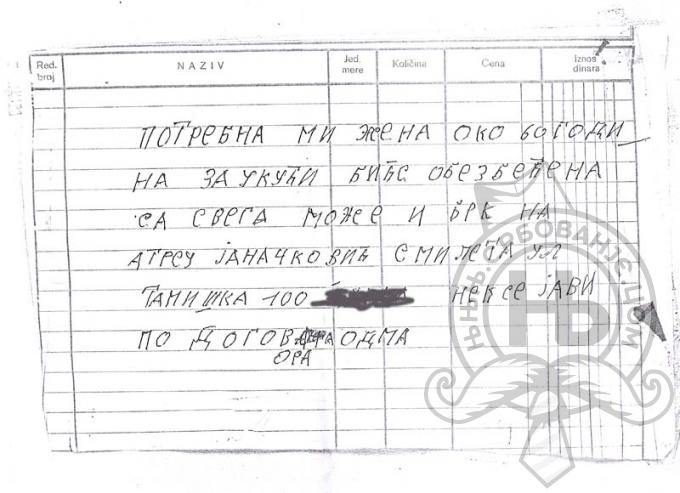 Red. broj NAZIV Jed. mere Količina Cena Iznos dinara
ПОТРЕБНА МИ ЖЕНА ОКО 60 ГОДИ
НА ЗА УКУЋИ БИЋЕ ОБЕЗБЕЋЕНА
СА СВЕГА МОЖЕ И БРК НА
АТРЕСУ ЈАНАЧКОВИЋ СМИЛЕТА УЛ
ТАМИШКА 100 НЕК СЕ ЈАВИ
ПО ДОГОВ ОДМА
ОРА
ЊЊЊ.ТРБОВАЊЕ.ЦОМ
Њ